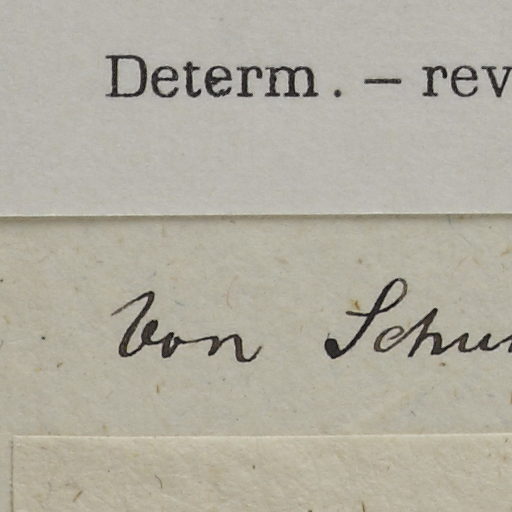 Determ. – rev
Von Schu